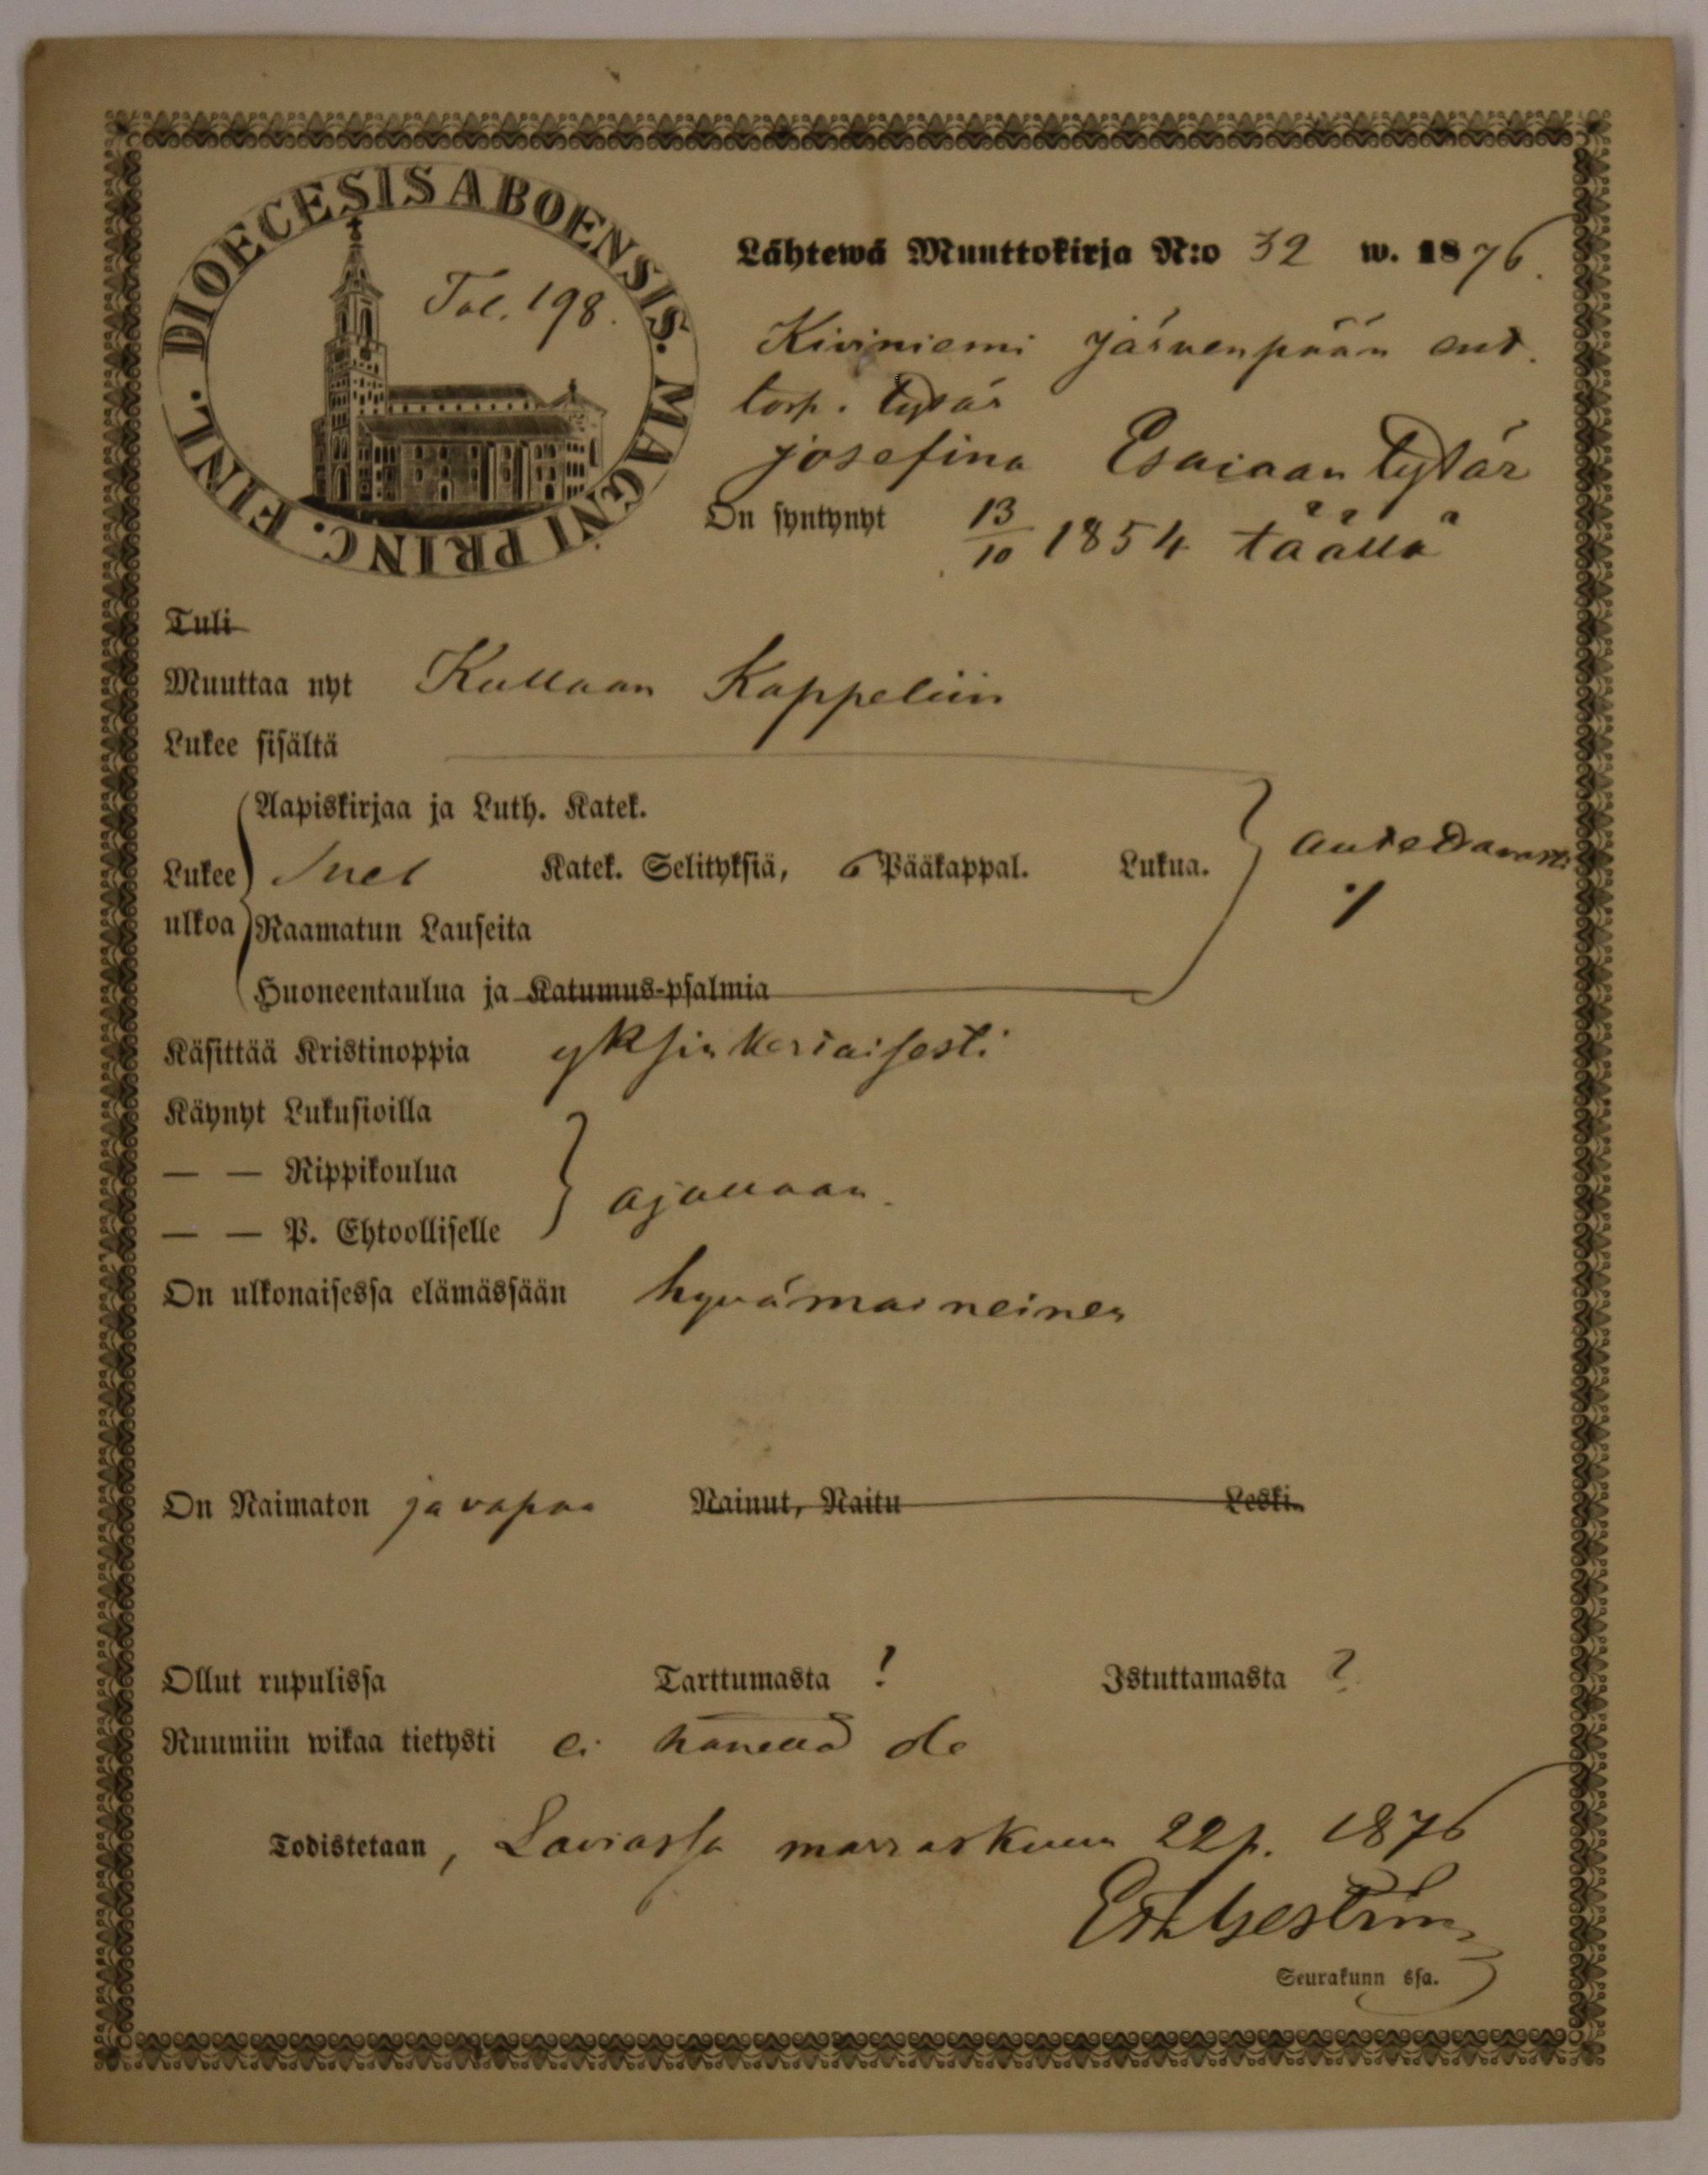 DIOECESIS ABOENSIS. MAGNI PRINC. FINL.
Tal. 198.
Lähtewä Muuttokirja N:o 32 w. 1876.
Kiviniemi Järvenpään ent.
torp. tytär
Josefina Esaiaan tytär
On syntynyt 13/10 1854 täällä
Tuli
Muuttaa nyt Kullaan Kappeliin
Lukee sisältä
Aapiskirjaa ja Luth. Katek.
Lukee ulkoa Svet Katek. Selityksiä, 6 Pääkappal. Lukua. auttavasti
Raamatun Lauseita
Huoneentaulua ja Katumus-psalmia
Käsittää Kristinoppia yksinkertaisesti
Käynyt Lukusioilla
— — Rippikoulua ajallaan.
— — P. Ehtoolliselle
On ulkonaisessa elämässään hyvämaineinen
On Naimaton ja vapaa Nainut, Naitu Leski.
Ollut rupulissa Tarttumasta ? Istuttamasta ?
Ruumiin wikaa tietysti ei hänellä ole
Todistetaan, Laviassa marraskuun 22 p. 1876
Seurakunn ssa.